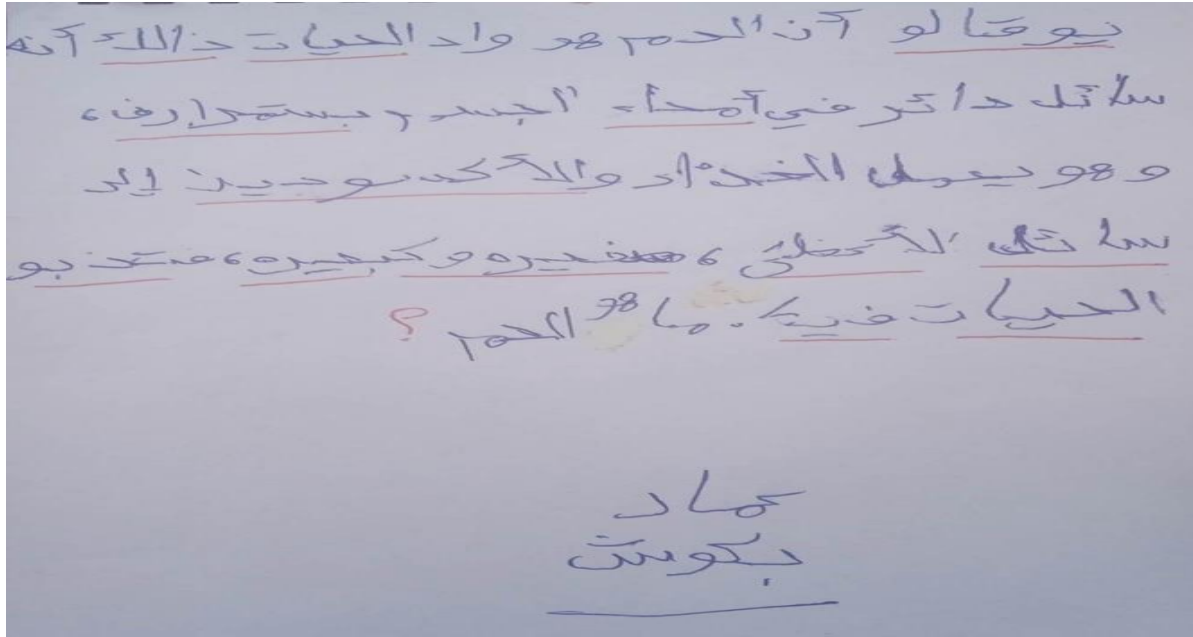 يوقتا لو آن الدم هو واد الحيات ذالك آنه
سائل دائر في آمحاء الجسم بستمرارف،
وهو يحمل الغذاء والآكسوجين إلى
سائل الآعظئ، صغيره وكبيره، فتذبو
الحيات فيها. ما هو الدم؟
عماد
بكوش